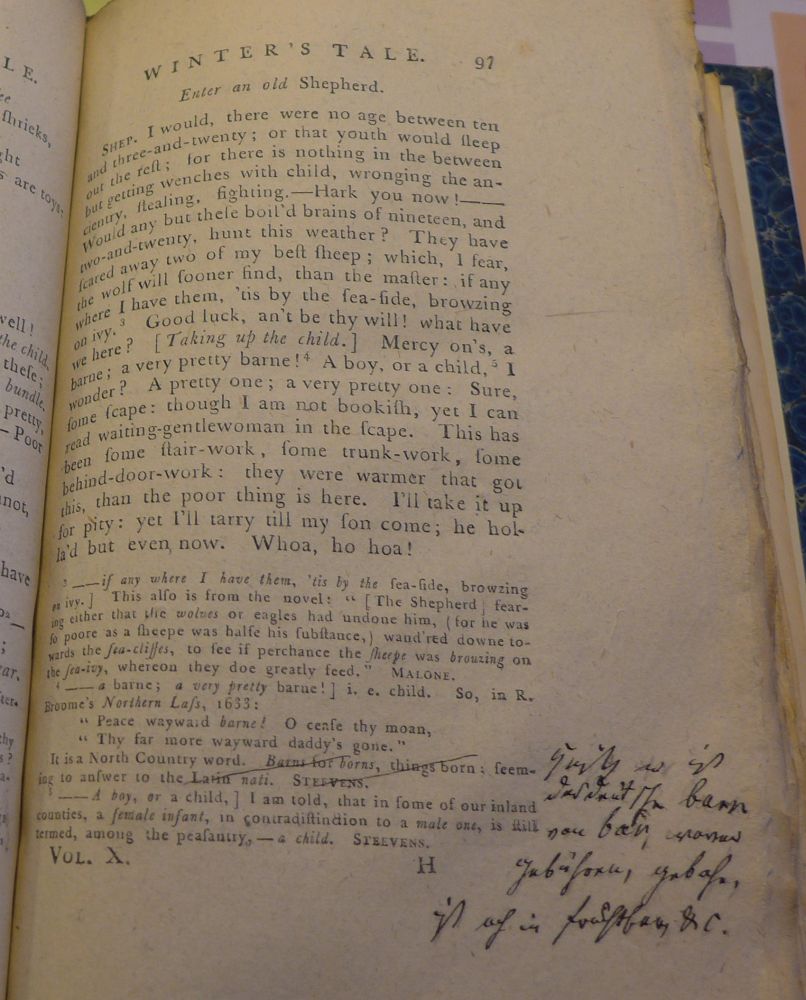 LE.
ſhricks,
are toys:
vell!
the child,
theſe;
bundle,
pretty,
—Poor
'd
not,
have
;
WINTER'S TALE. 97
Enter an old Shepherd.
SHEP. I would, there were no age between ten
and three-and-twenty; or that youth would ſleep
out the reſt; for there is nothing in the between
but getting wenches with child, wronging the an-
cientry, ſtealing, fighting.—Hark you now!——
Would any but theſe boil'd brains of nineteen, and
two-and-twenty, hunt this weather? They have
ſcared away two of my beſt ſheep; which, I fear,
the wolf will ſooner find, than the maſter: if any
where I have them, 'tis by the ſea-ſide, browzing
on ivy.³ Good luck, an't be thy will! what have
we here? [Taking up the child.] Mercy on's, a
barne; a very pretty barne!⁴ A boy, or a child,⁵ I
wonder? A pretty one; a very pretty one: Sure,
ſome ſcape: though I am not bookiſh, yet I can
read waiting-gentlewoman in the ſcape. This has
been ſome ſtair-work, ſome trunk-work, ſome
behind-door-work: they were warmer that got
this, than the poor thing is here. I'll take it up
for pity: yet I'll tarry till my ſon come; he hol-
la'd but even now. Whoa, ho hoa!
³ ——if any where I have them, 'tis by the ſea-ſide, browzing
on ivy.] This alſo is from the novel: "[The Shepherd] fear-
ing either that the wolves or eagles had undone him, (for he was
ſo poore as a ſheepe was halfe his ſubſtance,) wand'red downe to-
wards the ſea-cliffes, to ſee if perchance the ſheepe was brouzing on
the ſea-ivy, whereon they doe greatly feed." MALONE.
⁴ ——a barne; a very pretty barne!] i. e. child. So, in R.
Broome's Northern Laſs, 1633:
"Peace wayward barne! O ceaſe thy moan,
"Thy far more wayward daddy's gone."
It is a North Country word. Barns for borns, things born; ſeem-
ing to anſwer to the Latin nati. STEEVENS.
⁵ ——A boy, or a child,] I am told, that in ſome of our inland
counties, a female infant, in contradiſtinction to a male one, is ſtill
termed, among the peaſantry,—a child. STEEVENS.
VOL. X. H
ist
das deutsche barn
von bär,
gebühren, gebahr,
ist in fruchtbar, &c.